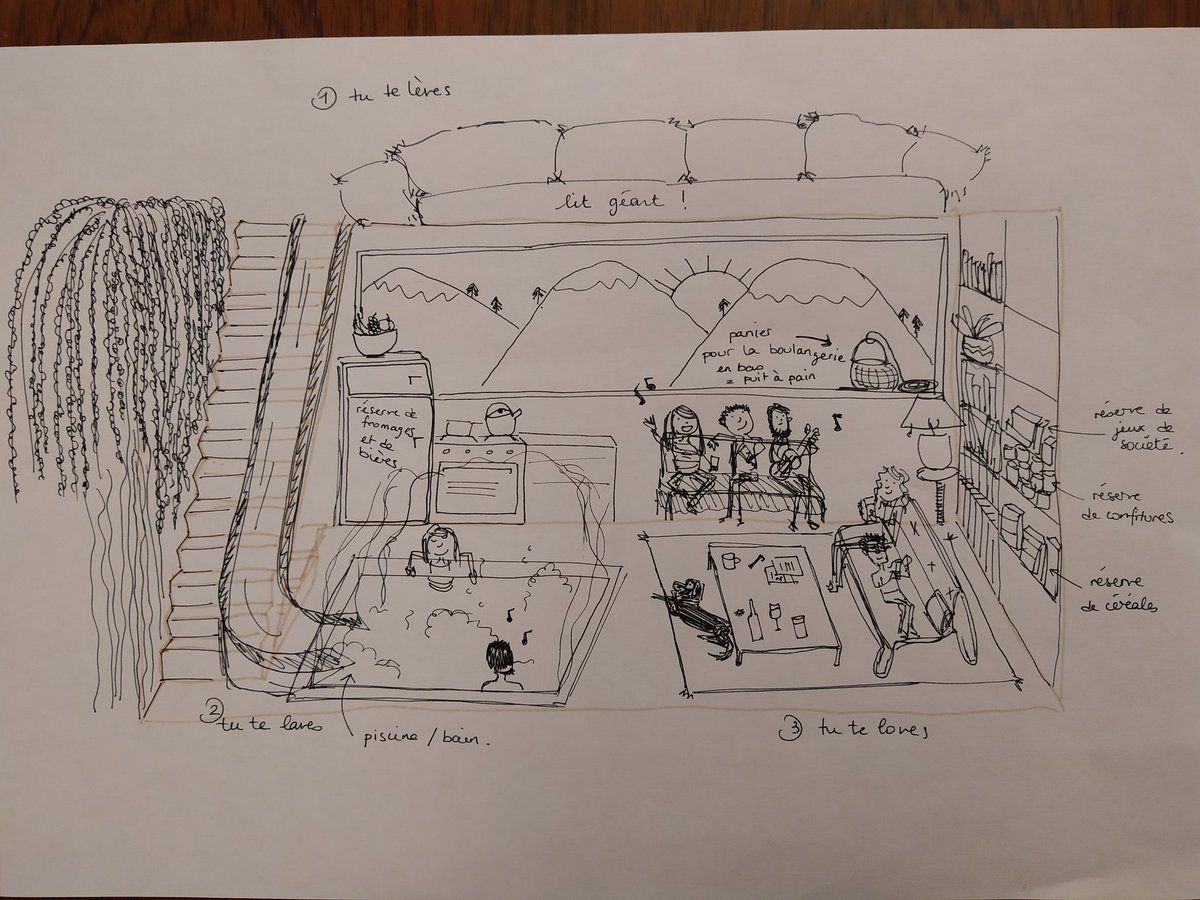 ① tu te lèves
lit géant !
panier
pour la boulangerie
en bas
= puit à pain
réserve de
fromages
et de
bières
réserve de
jeux de
société.
réserve
de confitures
réserve
de céréales
② tu te laves
piscine / bain.
③ tu te loves